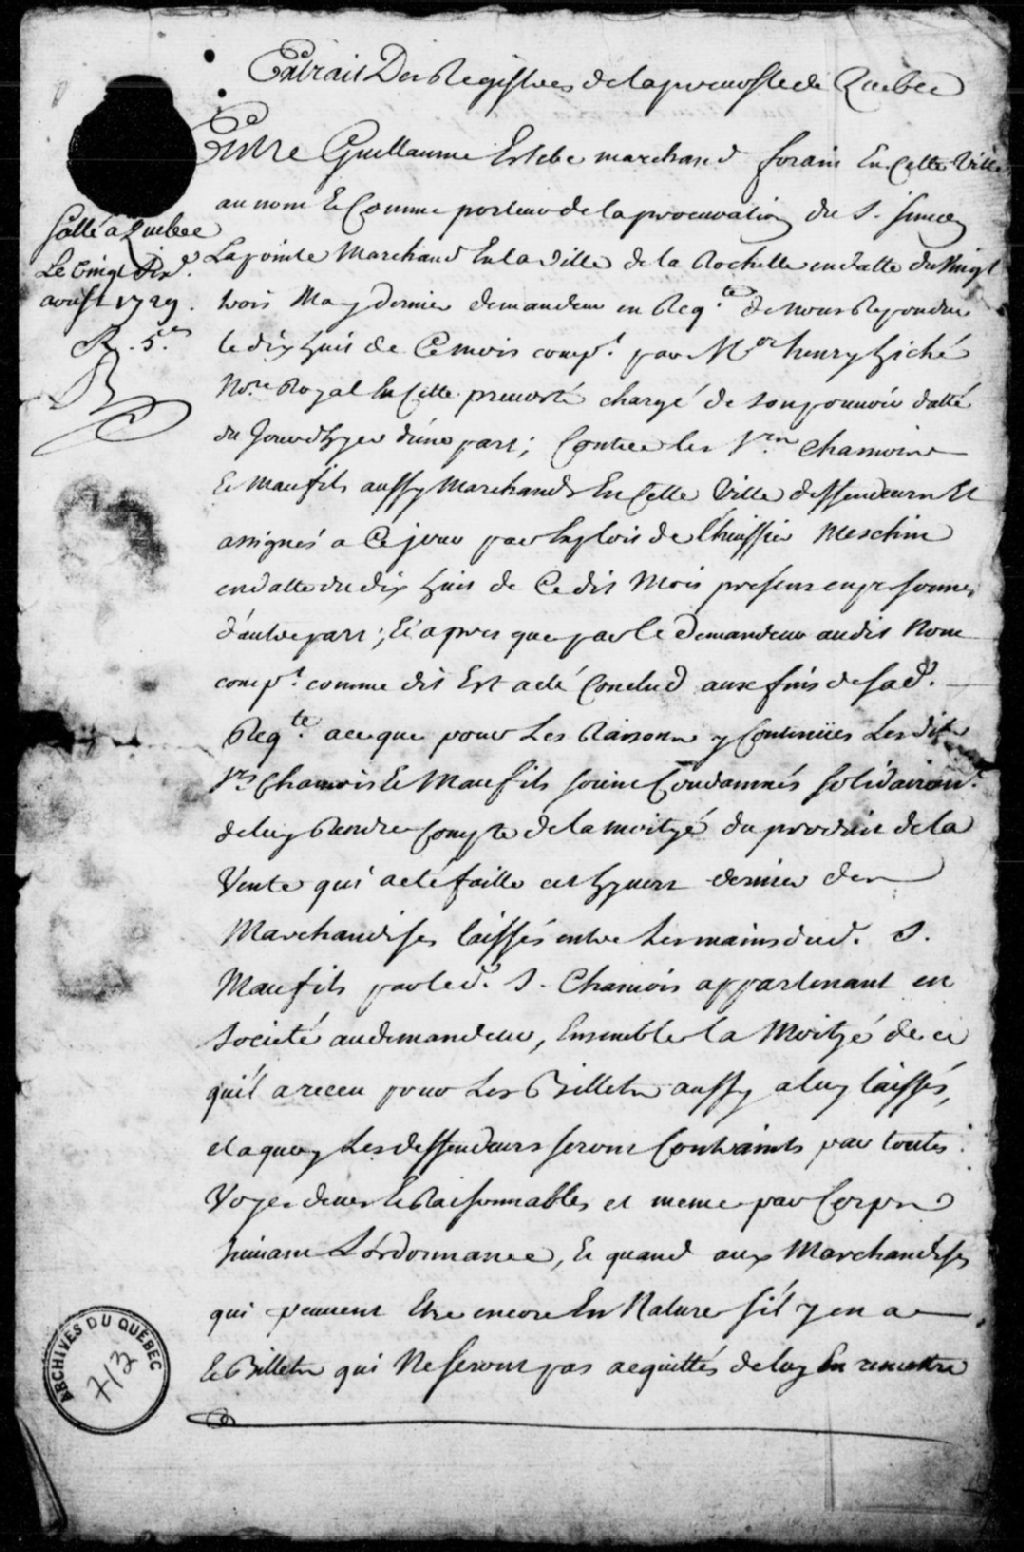 Extrait Des Registres de la prevosté de Quebec
Entre Guillaume Estebe marchand forain En Cette Ville
au nom Et Comme porteur de la procuration du S. Simon
Lapointe Marchand En la Ville de la Rochelle en datte du Vingt
trois May dernier demandeur en Req.te de nous Repondue
le dix huit de Ce mois comp.t par M.e henry hiché
No.re Royal En Cette prevosté chargé de son pouvoir datté
du Jour d'hyer d'une part; Contre les S.rs Chamoine
Et Maufils aussy Marchands En Cette Ville deffendeurs Et
assignés a Ce jour par Exploit de l'huissier Meschin
en datte du dix huit de Ce dit Mois presens en personnes
d'autre part; Et apres que par le demandeur au dit Nom
comp.t comme dit Est a eté Conclud aux fins de sa d.
Req.te a ce que pour Les Raisons y Contenües Les dits
S.rs Chamois Et Maufils soient Condamnés solidairem.t
de luy Rendre Compte de la moityé du produit de la
Vente qui a eté faitte cet hyver dernier des
Marchandises laissés entre Les mains dud. S.
Maufils par led. S. Chamois appartenant en
Societé au demandeur, Ensemble la Moityé de ce
qu'il a receu pour Les Billets aussy a luy laissés,
et a quoy Les deffendeurs seront Contraints par toutes
Voyes deues Et Raisonnables et meme par Corps
suivant L'ordonnance, Et quand aux Marchandises
qui peuvent Etre encore En Nature s'il y en a
Et Billets qui Ne seront pas acquittés de luy En remettre
Sellé a Quebec
Le Vingt Six
aoust 1729.
R. 5.s
ARCHIVES DU QUÉBEC
713